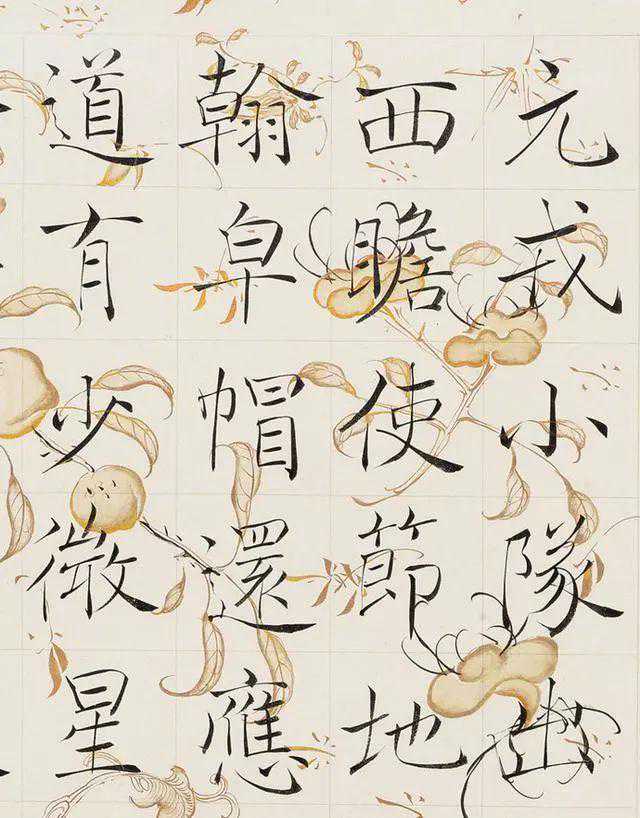 元戎小隊出
西瞻使節地
翰皁帽還應
道有少微星